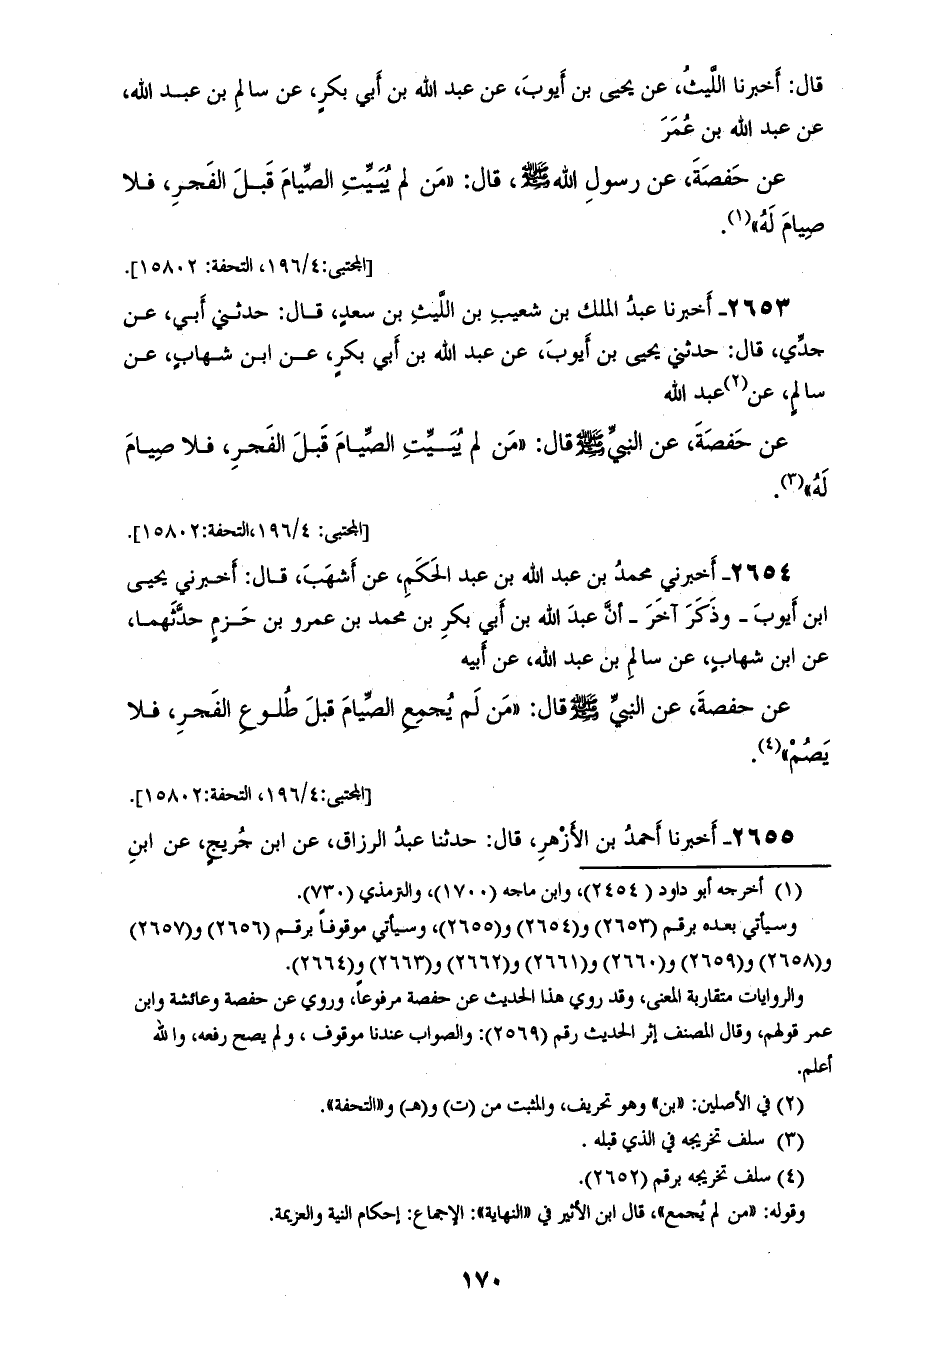 قال: أَخبرنا اللَّيثُ، عن يحيى بن أَيوبَ، عن عبد الله بن أَبي بكرٍ، عن سالمِ بن عبـد الله،
عن عبد الله بن عُمَرَ
عن حَفصَةَ، عن رسولِ الله ﷺ، قال: «مَن لم يُبَيِّتِ الصِّيامَ قَبلَ الفَجرِ، فـلا
صِيامَ لَهُ»(١).
[المجتبى:١٩٦/٤، التحفة: ١٥٨٠٢].
٢٦٥٣ـ أَخبرنا عبدُ الملك بن شعيبِ بن اللَّيثِ بن سعدٍ، قـال: حدثـني أَبي، عـن
جدِّي، قال: حدثني يحيى بن أَيوبَ، عن عبد الله بن أَبي بكرٍ، عـن ابـن شـهابٍ، عـن
سالمٍ، عن(٢) عبد الله
عن حَفصَةَ، عن النبيِّ ﷺ قال: «مَن لم يُبَـيِّتِ الصِّيـامَ قَبـلَ الفَجرِ، فـلا صِيـامَ
لَهُ»(٣).
[المجتبى: ١٩٦/٤،التحفة:١٥٨٠٢].
٢٦٥٤ـ أَخبرني محمدُ بن عبد الله بن عبد الحَكَمِ، عن أَشهَبَ، قـال: أَخـبرني يحيـى
ابن أَيوبَ ـ وذَكَرَ آخَرَ ـ أنَّ عبدَ الله بن أَبي بكرِ بن محمد بن عمرو بن حَـزمٍ حدَّثَهمـا،
عن ابن شهابٍ، عن سالمِ بن عبد الله، عن أَبيه
عن حفصةَ، عن النبيِّ ﷺ قال: «مَن لَم يُجمِعِ الصِّيامَ قبلَ طُلـوعِ الفَجـرِ، فـلا
يَصُمْ»(٤).
[المجتبى:١٩٦/٤، التحفة:١٥٨٠٢].
٢٦٥٥ـ أَخبرنا أَحمدُ بن الأَزْهرِ، قال: حدثنا عبدُ الرزاق، عن ابن جُريجٍ، عن ابنِ
(١) أخرجه أبو داود ( ٢٤٥٤)، وابن ماجه (١٧٠٠)، والترمذي (٧٣٠).
وسيأتي بعده برقم (٢٦٥٣) و(٢٦٥٤) و(٢٦٥٥)، وسيأتي موقوفاً برقـم (٢٦٥٦) و(٢٦٥٧)
و(٢٦٥٨) و(٢٦٥٩) و(٢٦٦٠) و(٢٦٦١) و(٢٦٦٢) و(٢٦٦٣) و(٢٦٦٤).
والروايات متقاربة المعنى، وقد روي هذا الحديث عن حفصة مرفوعاً، وروي عن حفصة وعائشة وابن
عمر قولهم، وقال المصنف إثر الحديث رقم (٢٥٦٩): والصواب عندنا موقوف ، ولم يصح رفعه، والله
أعلم.
(٢) في الأصلين: «بن» وهو تحريف، والمثبت من (ت) و(هـ) و«التحفة».
(٣) سلف تخريجه في الذي قبله .
(٤) سلف تخريجه برقم (٢٦٥٢).
وقوله: «من لم يُجمع»، قال ابن الأثير في «النهاية»: الإجماع: إحكام النية والعزيمة.
١٧٠